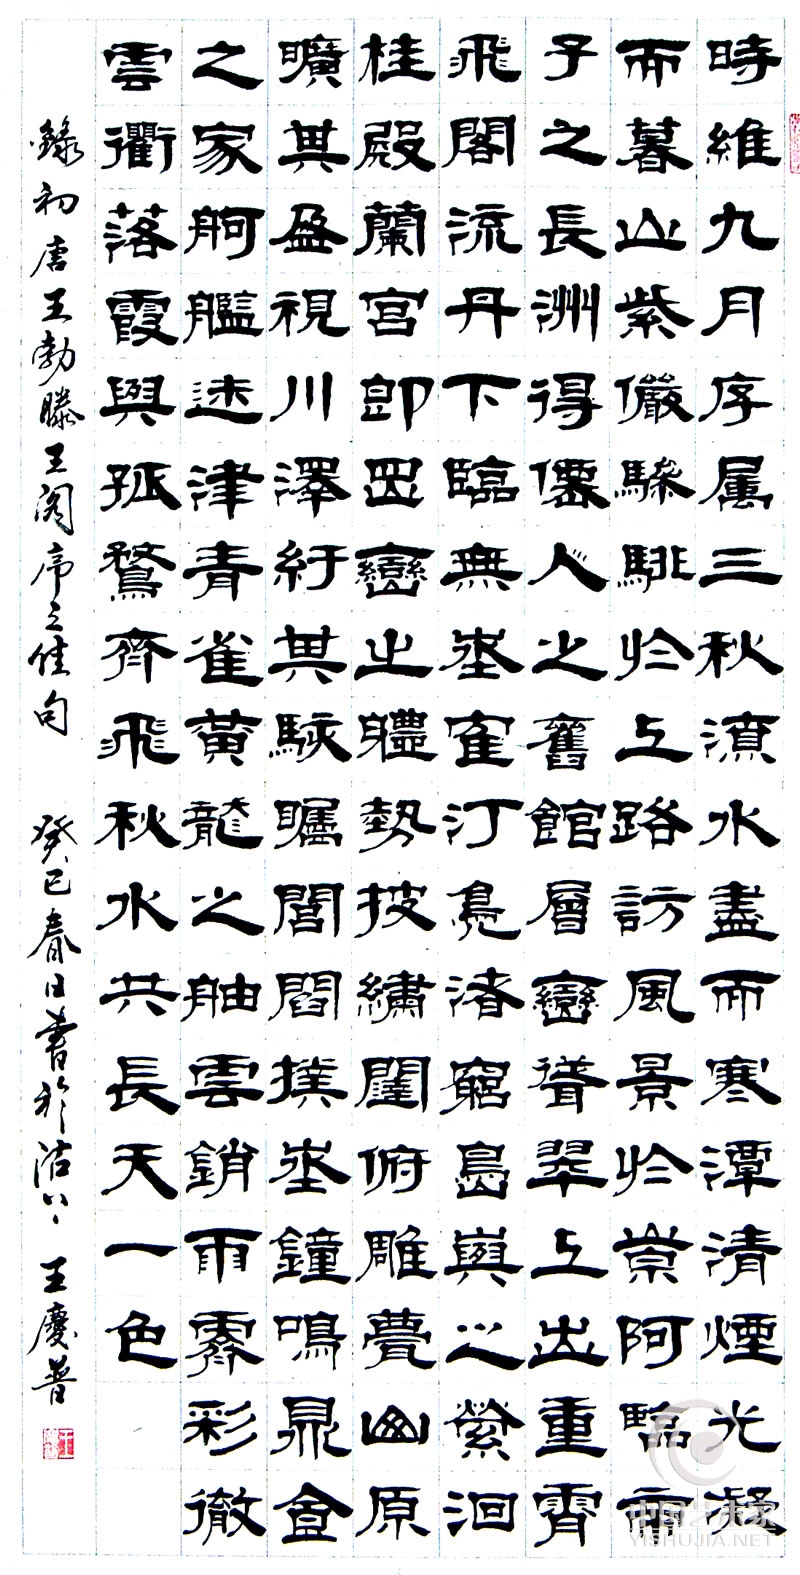 時維九月序属三秋潦水盡而寒潭清煙光凝
而暮山紫儼驂騑於上路訪風景於崇阿臨帝
子之長洲得僊人之舊館層巒聳翠上出重霄
飛閣流丹下臨無坔寉汀鳧渚窮島嶼之縈洄
桂殿蘭宮即岡巒之體勢披繡闥俯雕甍山原
曠其盈視川澤紆其駭矚閭閻撲坔鐘鳴鼎食
之家舸艦迷津青雀黃龍之舳雲銷雨霽彩徹
雲衢落霞與孤鶩齊飛秋水共長天一色
錄初唐王勃滕王阁序之佳句 癸巳春日書於沽上 王慶普
中国艺术家
YISHUJIA.NET